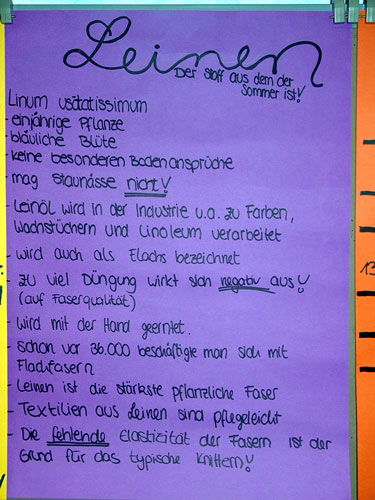 Leinen
Der Stoff aus dem der
Sommer ist!
Linum usitatissimum
- einjährige Pflanze
- bläuliche Blüte
- keine besonderen Bodenansprüche
- mag Staunässe nicht!
- Leinöl wird in der Industrie u.a. zu Farben,
Wachstüchern und Linoleum verarbeitet
- wird auch als Flachs bezeichnet
- zu viel Düngung wirkt sich negativ aus!
(auf Faserqualität)
- wird mit der Hand geerntet.
- schon vor 36.000 beschäftigte man sich mit
Flachfasern
- Leinen ist die stärkste pflanzliche Faser
- Textilien aus Leinen sind pflegeleicht
- Die fehlende Elastizität der Fasern ist der
Grund für das typische Knittern!
13